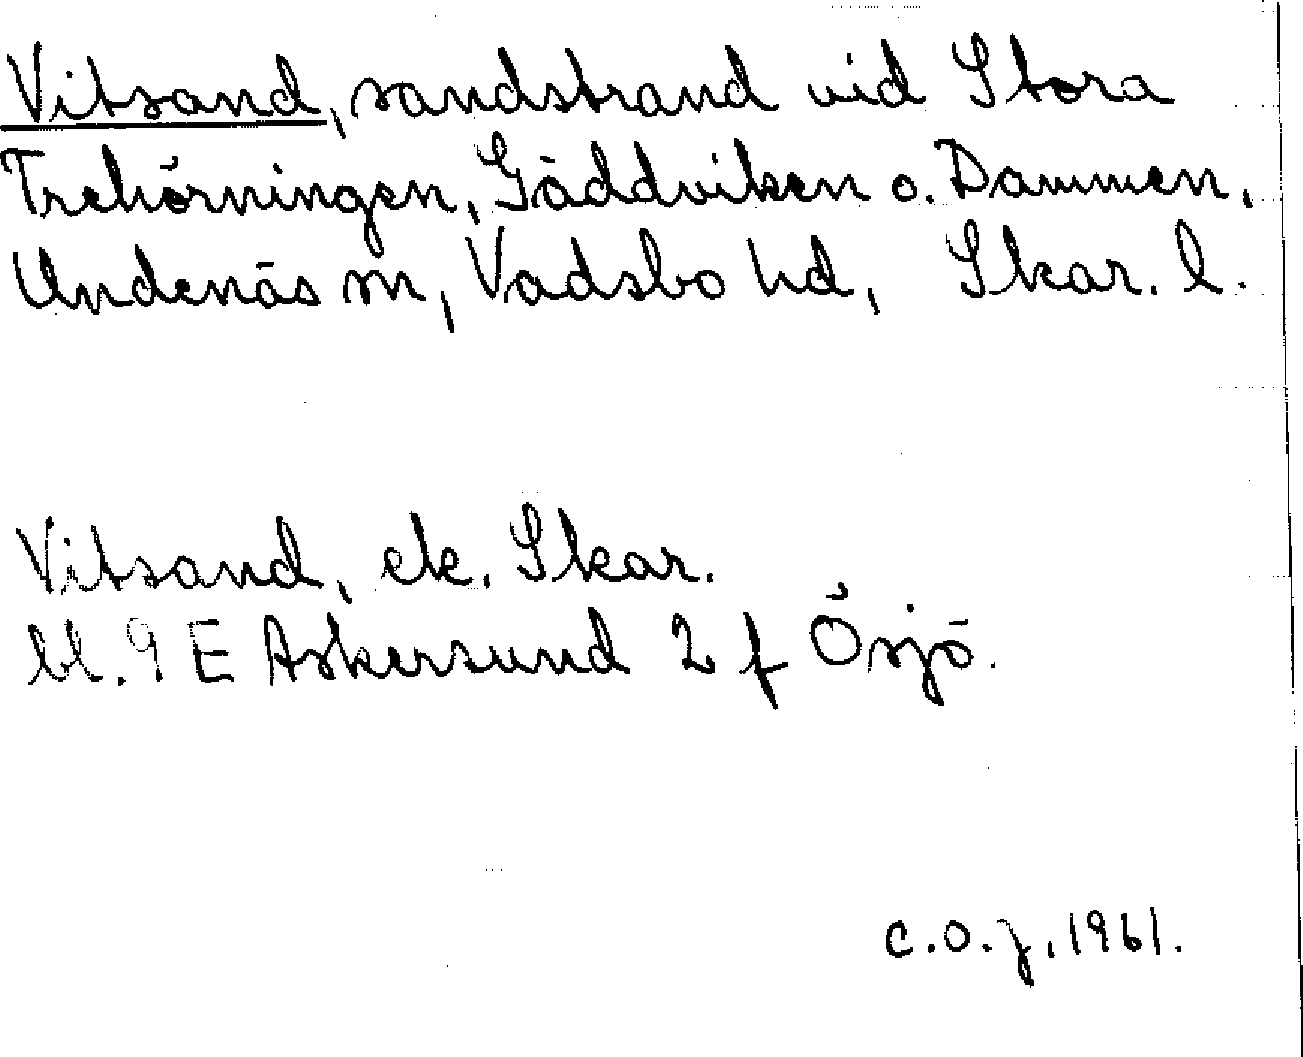 Vitsand, sandstrand vid Stora
Trehörningen, Gäddviken o. Dammen,
Undenäs sn, Vadsbo hd, Skar. l.
Vitsand, ek. Skar.
bl. 9 E Askersund 2 f Ösjö.
C.O.J. 1961.